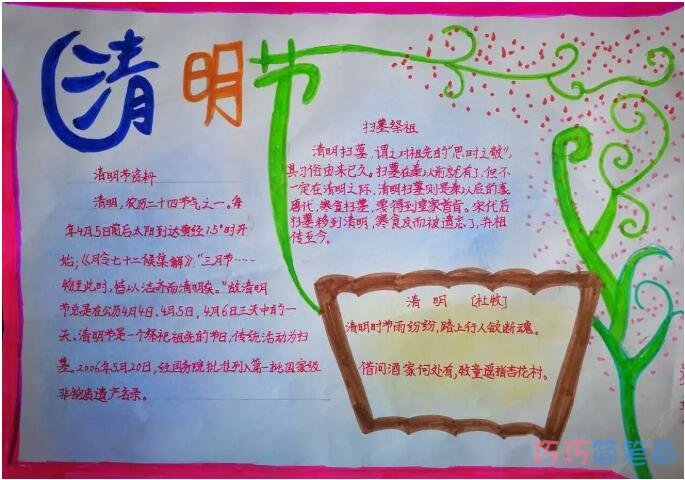 清明节
清明节资料
清明,农历二十四节气之一。每
年4月5日前后太阳到达黄经15°时开
始;《月令七十二候集解》:“三月节……
物至此时,皆以洁齐而清明矣。”故清明
节总是在公历4月4日、4月5日、4月6日三天中的一
天。清明节是一个祭祀祖先的节日,传统活动为扫
墓。2006年5月20日,经国务院批准列入第一批国家级
非物质遗产名录。
扫墓祭祖
清明扫墓,谓之对祖先的“思时之敬”,
其习俗由来已久。扫墓在秦以前就有了,但不
一定在清明之际,清明扫墓则是秦以后的事
唐代,寒食扫墓,
宋代后
扫墓移到清明,寒食反而被遗忘了,并相
传至今。
清明 [杜牧]
清明时节雨纷纷,路上行人欲断魂。
借问酒家何处有,牧童遥指杏花村。
巧巧简笔画